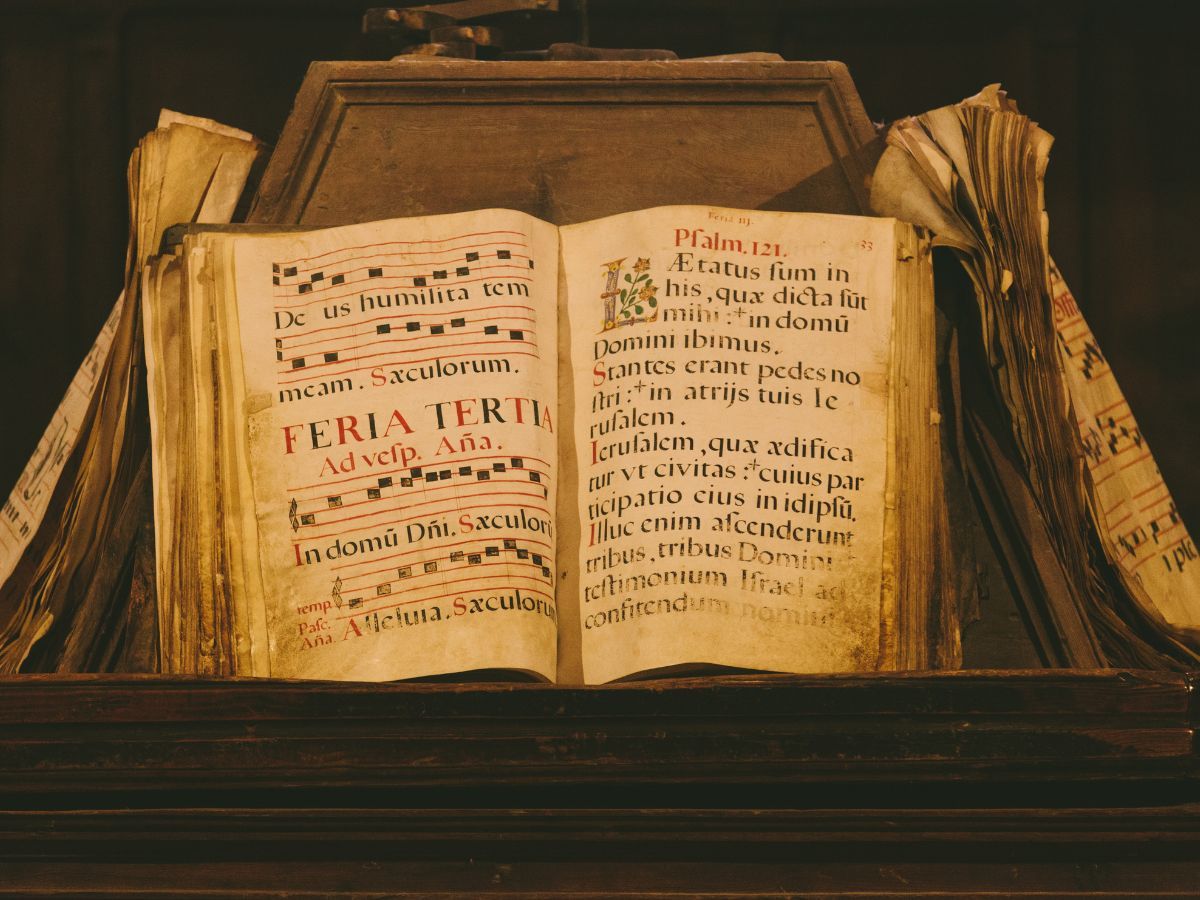 De us humilita tem
meam. Sæculorum.
FERIA TERTIA
Ad veſp. Aña.
In domũ Dñi. Sæculorũ
temp.
Paſc.
Aña. Alleluia. Sæculorum
Feria iij.
Pſalm. 121. 33
LÆtatus ſum in
his, quæ dicta ſũt
mihi :† in domũ
Domini ibimus.
Stantes erant pedes no
ſtri :† in atrijs tuis Ie
ruſalem.
Ieruſalem, quæ ædifica
tur vt civitas :† cuius par
ticipatio eius in idipſũ.
Illuc enim aſcenderunt
tribus, tribus Domini :
teſtimonium Iſrael ad
confitendum nomini